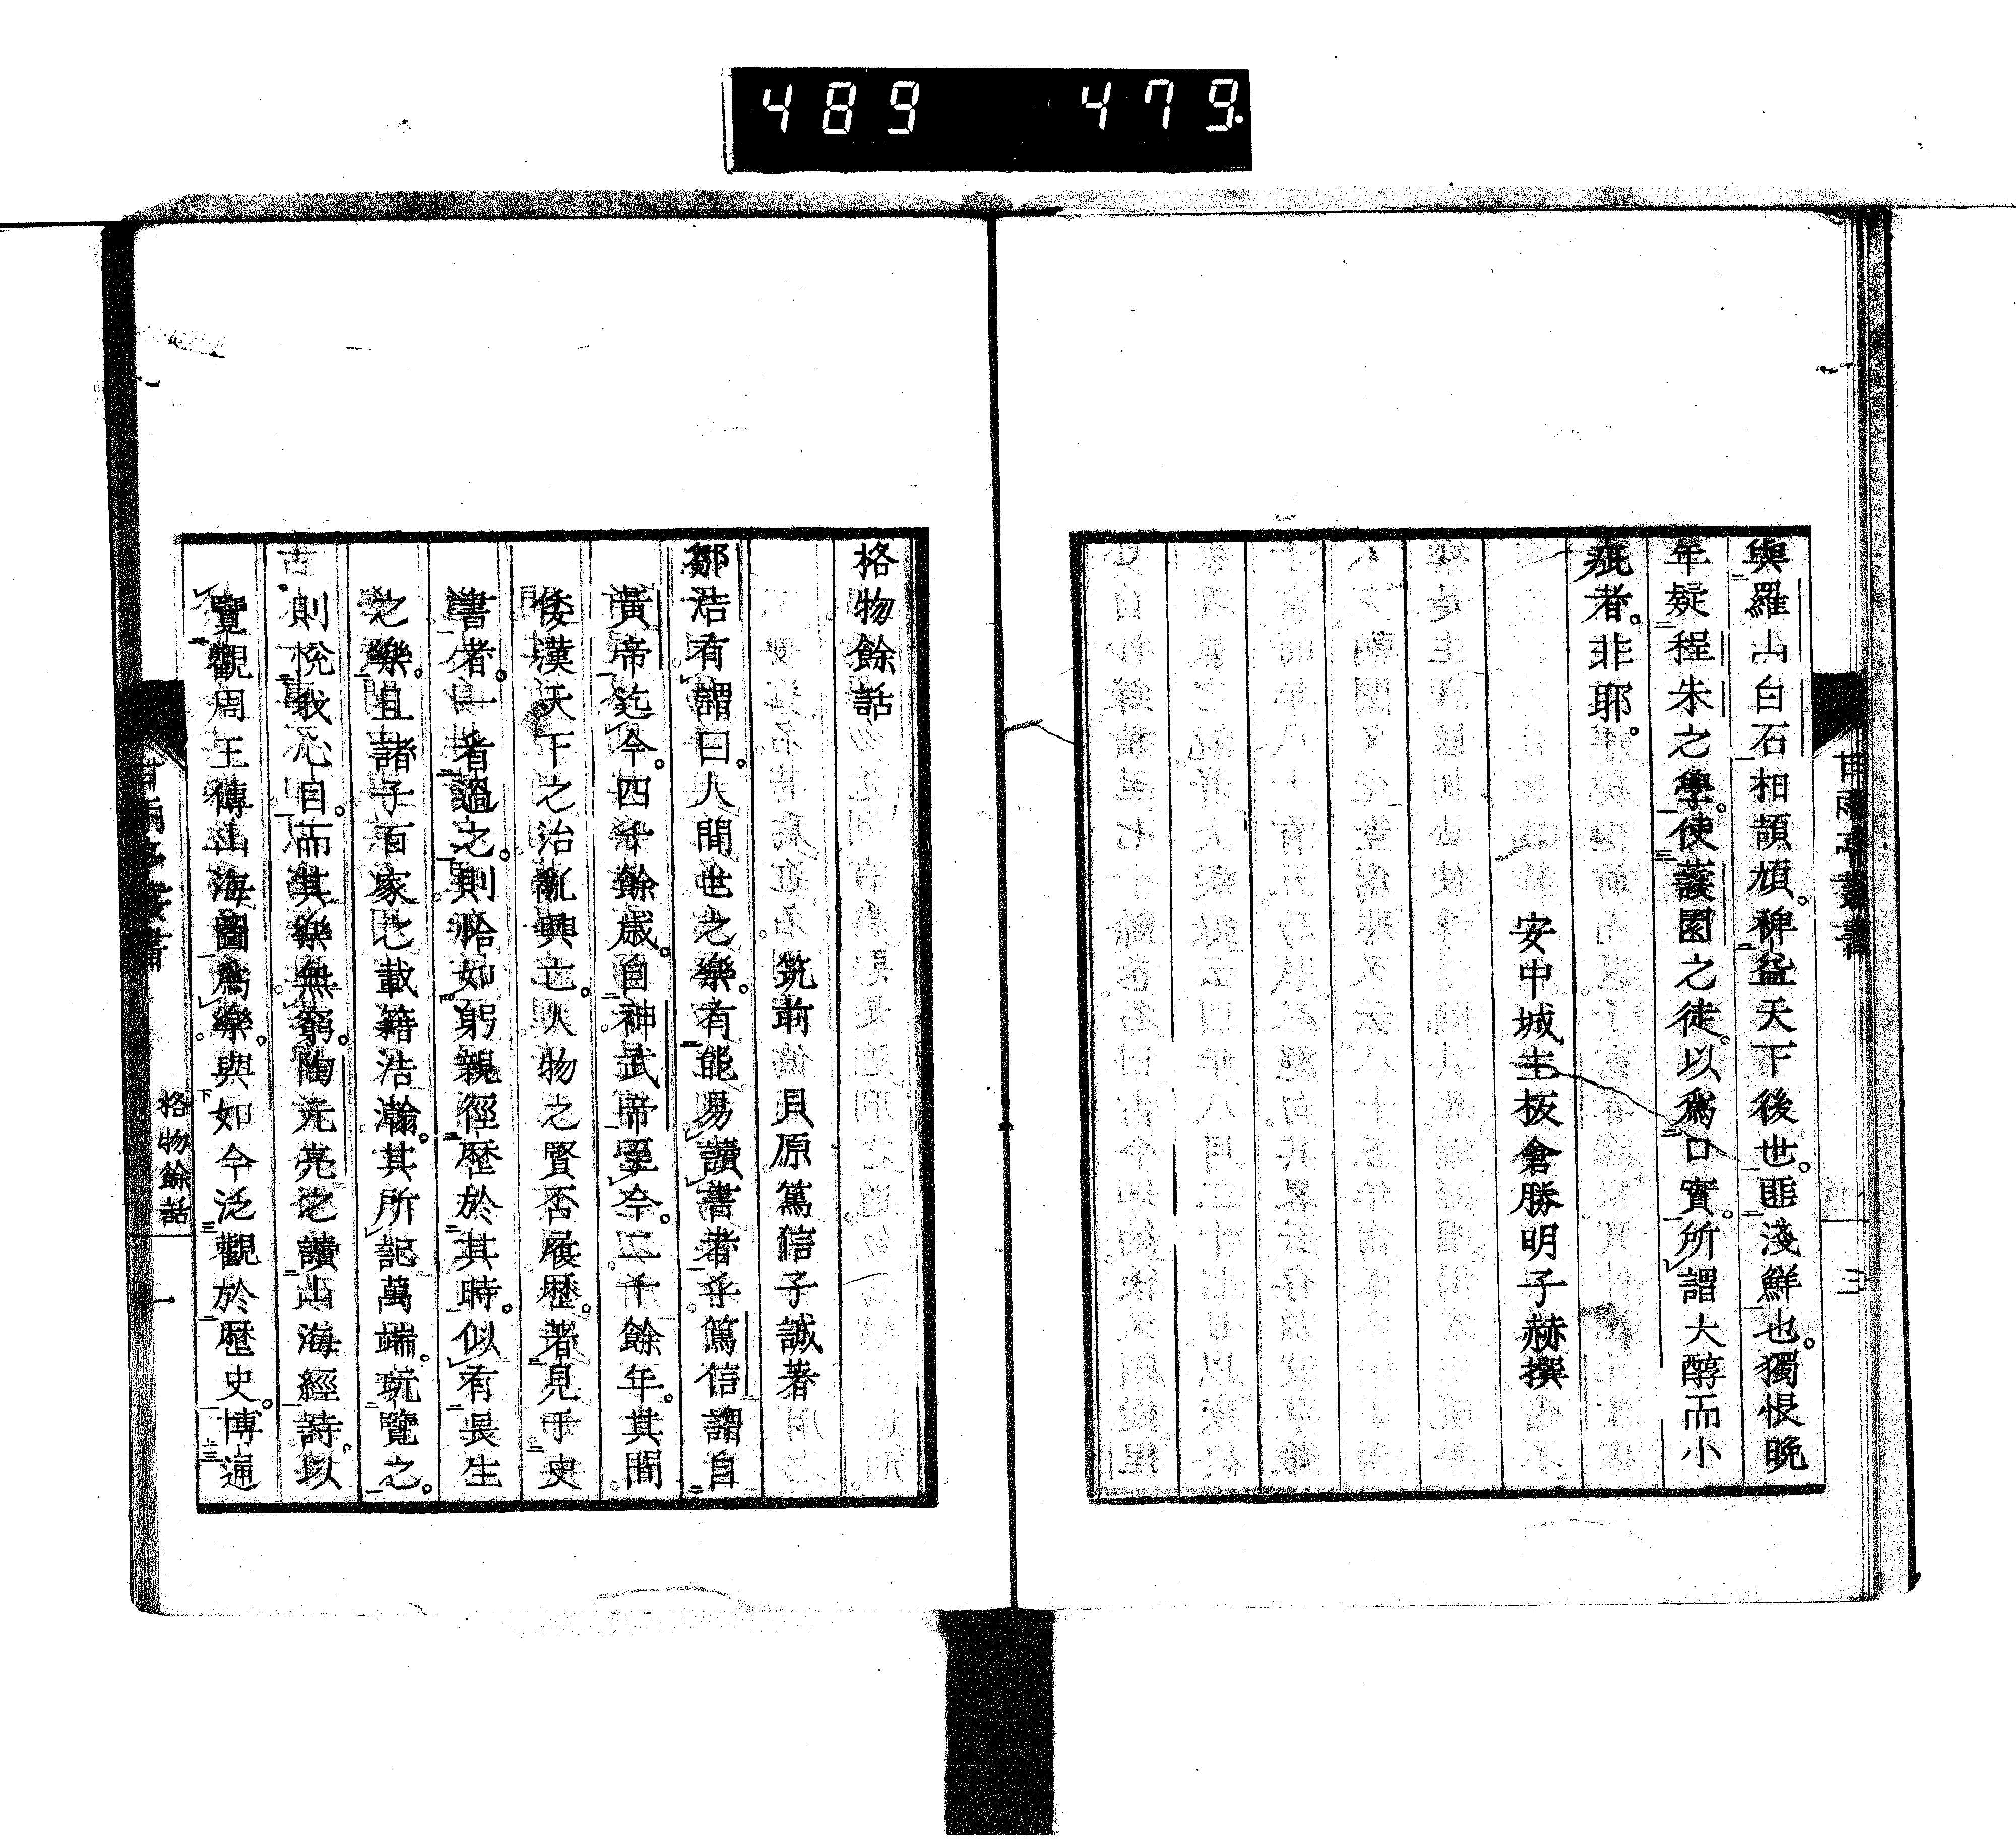 489 479.
與羅山白石相頡頏。裨益天下後世。匪淺鮮也。獨恨晩
年疑程朱之學。使蘐園之徒。以爲口實。所謂大醇而小
疵者。非耶。
安中城主板倉勝明子赫撰
甘雨亭叢書
三
格物餘話
筑前 貝原篤信子誠著
鄒浩有謂曰。人間世之樂。有能易讀書者乎。篤信謂自
黃帝迄今。四千餘歲。自神武帝至今。二千餘年。其間
倭漢天下之治亂興亡。人物之賢否履歷。著見于史
書者。一看過之。則恰如躬親徑歷於其時。似有長生
之樂。且諸子百家之載籍浩瀚。其所記萬端。玩覽之。
則悅我心目。而其樂無窮。陶元亮之讀山海經詩。以
覽觀周王傳山海圖爲樂。與如今泛觀於歷史。博通
甘雨亭叢書
格物餘話
一